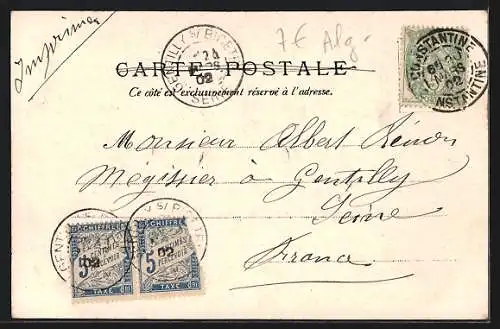 Imprimé
7€ Alg.
GENTILLY S/ BICETRE
02
SEINE
CONSTANTINE
02
CONSTANTINE
CARTE POSTALE
Ce côté est exclusivement réservé à l'adresse.
Monsieur Albert
Mégissier à Gentilly
Seine
France
CHIFFRE
5 CENTIMES
À PERCEVOIR
TAXE
02
CHIFFRE
5 CENTIMES
À PERCEVOIR
TAXE
02